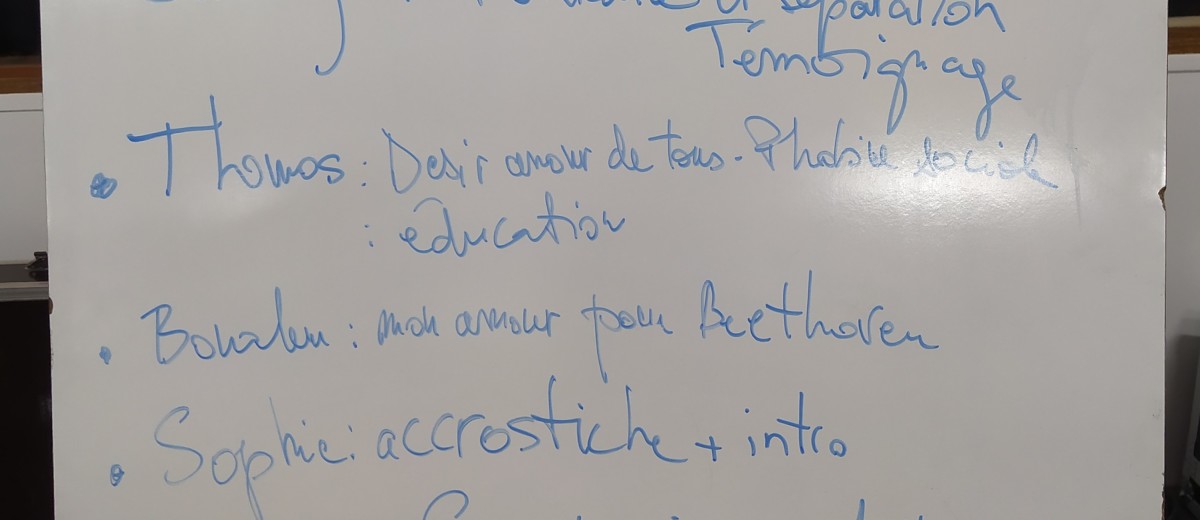 séparation
Témoignage
• Thomas : Desir amour de tous. Phobie sociale
: éducation
• : mon amour pour Beethoven
• Sophie : accrostiche + intro